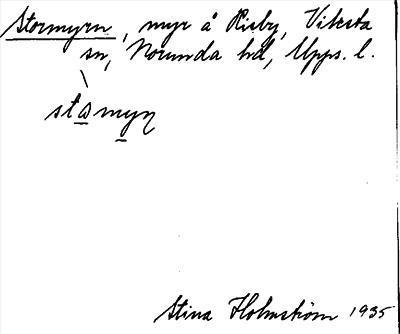 Stormyrn, myr å Risby, Viksta
sn, Norunda hd, Upps. l.
stamyn
Stina Holmström 1935